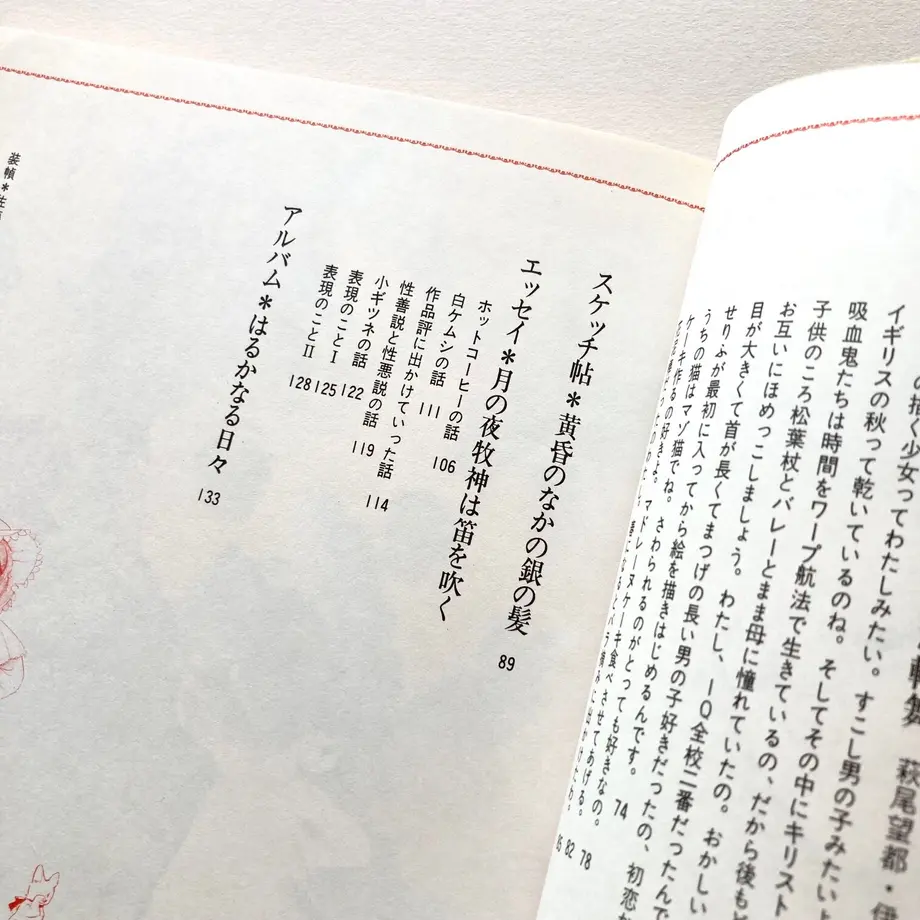 輪舞 萩尾望都・伊
の描く少女ってわたしみたい。すこし男の子みたい
イギリスの秋って乾いているのね。そしてその中にキリスト
吸血鬼たちは時間をワープ航法で生きているの、だから後も
子供のころ松葉杖とバレーとまま母に憧れていたの。おかしい
お互いにほめっこしましょう。わたし、IQ全校二番だったんで
目が大きくて首が長くてまつげの長い男の子好きだったの、初恋
せりふが最初に入ってから絵を描きはじめるんです。 74
うちの猫はマゾ猫でね。さわられるのがとっても好きなの。 78
ケーキ作るの好きよ。マドレーヌケーキ食べさせてあげる。 82
春になるとバラ摘みに出かけたわ。 85
スケッチ帖*黄昏のなかの銀の髪 89
エッセイ*月の夜牧神は笛を吹く
ホットコーヒーの話 106
白ケムシの話 111
作品評に出かけていった話 114
性善説と性悪説の話 119
小ギツネの話 122
表現のことI 125
表現のことII 128
アルバム*はるかなる日々 133
装幀*佐